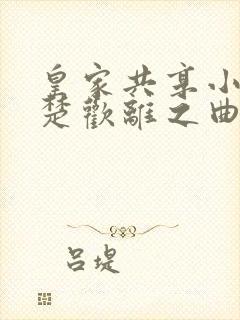 皇家共享小
楚歡離之曲
吕堤